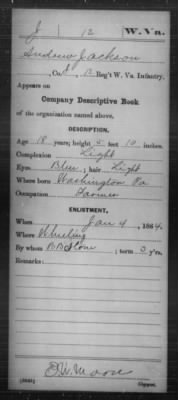 J 12 W. Va.
Andrew Jackson
Co. B, 12 Reg't W. Va. Infantry.
Appears on
Company Descriptive Book
of the organization named above.
DESCRIPTION.
Age 18 years; height 5 feet 10 inches.
Complexion Light
Eyes Blue; hair Light
Where born Washington Pa
Occupation Farmer
ENLISTMENT.
When Jan 4, 1864.
Where Wheeling
By whom ; term 3 y'rs.
Remarks:
E. W. Moore
Copyist.